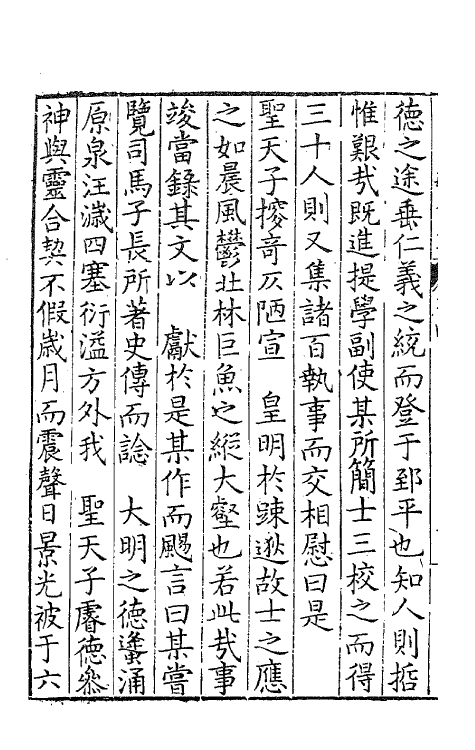 德之途垂仁義之統而登于郅平也知人則哲
惟艱㢤既進提學副使某所簡士三校之而得
三十人則又集諸百執事而交相慰曰是
聖天子搜竒仄陋宣　皇明於踈逖故士之應
之如晨風鬱北林巨魚之縱大壑也若此㢤事
竣當錄其文以　獻於是某作而颺言曰某嘗
覽司馬子長所著史傳而諗　大明之德䗬涌
原泉汪濊四塞衍溢方外我　聖天子睿德叅
神與靈合契不假歲月而震聲日景光被于六